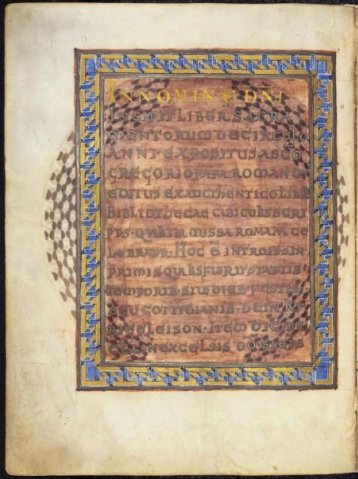 IN NOMINE DNI
INCIPIT LIBER SACRA
MENTORUM DE CIRCULI
ANNI EXPOSITUS A SCO
GREGORIO PAPA ROMANO
EDITUS EX AUTHENTICO LIBRO
BIBLIOTHECAE CUBICULI SCRI
PTUS QUALITER MISSA ROMANA CE
LEBRATUR HOC E INTROITUS IN
PRIMIS QUALIS FUERIT STATUTIS
TEMPORIB SIUE DIEB FESTIS
SEU COTTIDIANIS DEINDE
KYRIE ELEISON ITEM DICITUR
IN EXCELSIS DO